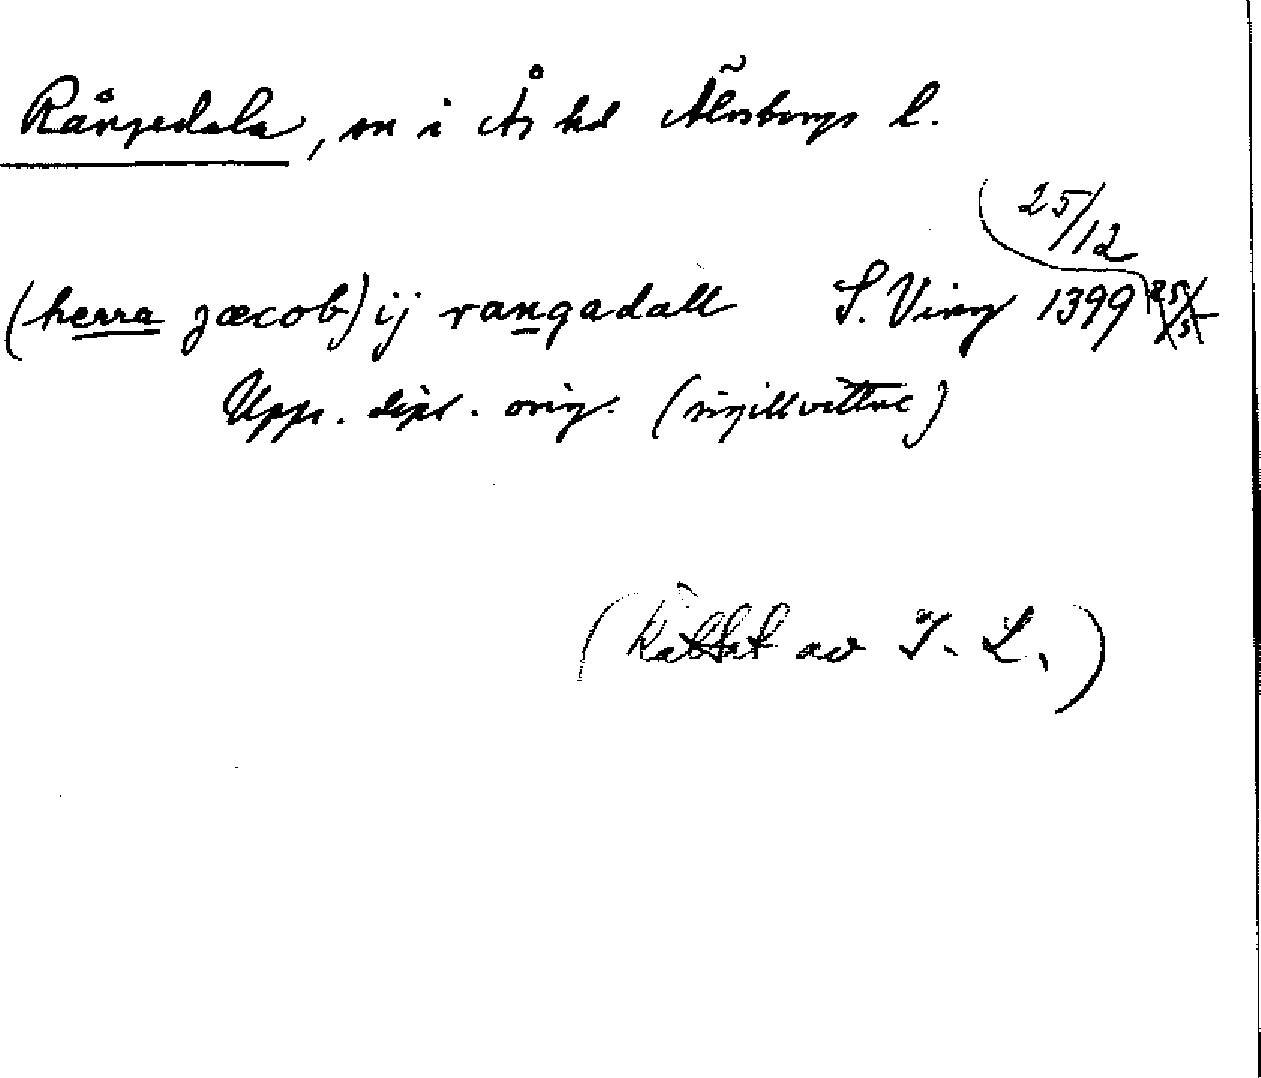 Rångedala, sn i Ås hd Älvsborgs l.
25/12
(herra jæcob) ij rangadall S. Ving 1399 25/5
Upps. dipl. orig. (sigillvittne)
(Rättat av I. L.)